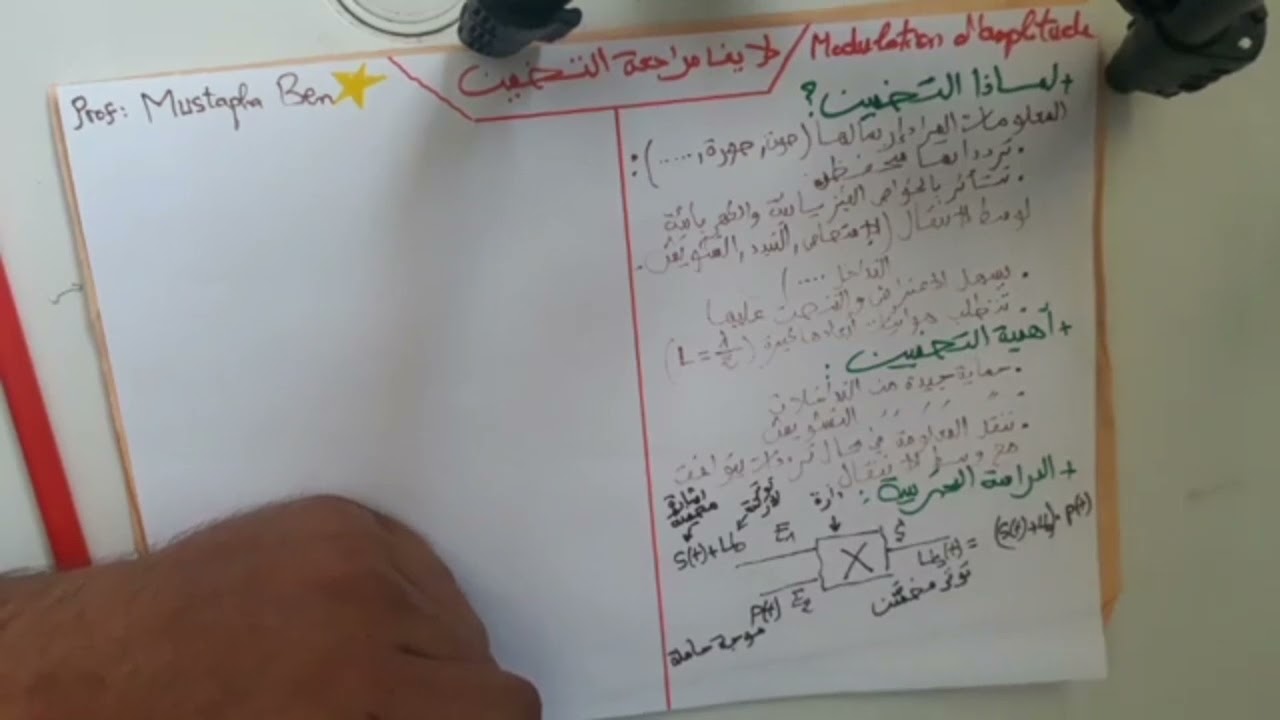 Modulation d'amplitude / لايف مراجعة التضمين
Prof: Mustapha Ben
+ لماذا التضمين؟
المعلومات المراد إرسالها (صوت, صورة, .....):
• تردداتها منخفضة
• تتأثر بالخواص الفيزيائية والكهربائية
لوسط الانتقال (الامتصاص, التبدد, التشويش.
التداخل ....)
• يسهل الاعتراض والتنصت عليها
• تتطلب هوائيات أبعادها كبيرة (L = λ/2)
+ أهمية التضمين :
• حماية جيدة من التداخلات
• " " " التشويش
• تنقل المعلومة في مجال ترددات يتوافق
مع وسط الانتقال
+ الدراسة التجريبية :
إشارة مضمنة
توتر
دارة
S(t)+U₀ E₁ X S Us(t) = (S(t)+U₀)·P(t)
P(t) E₂
توتر مضمن
موجة حاملة